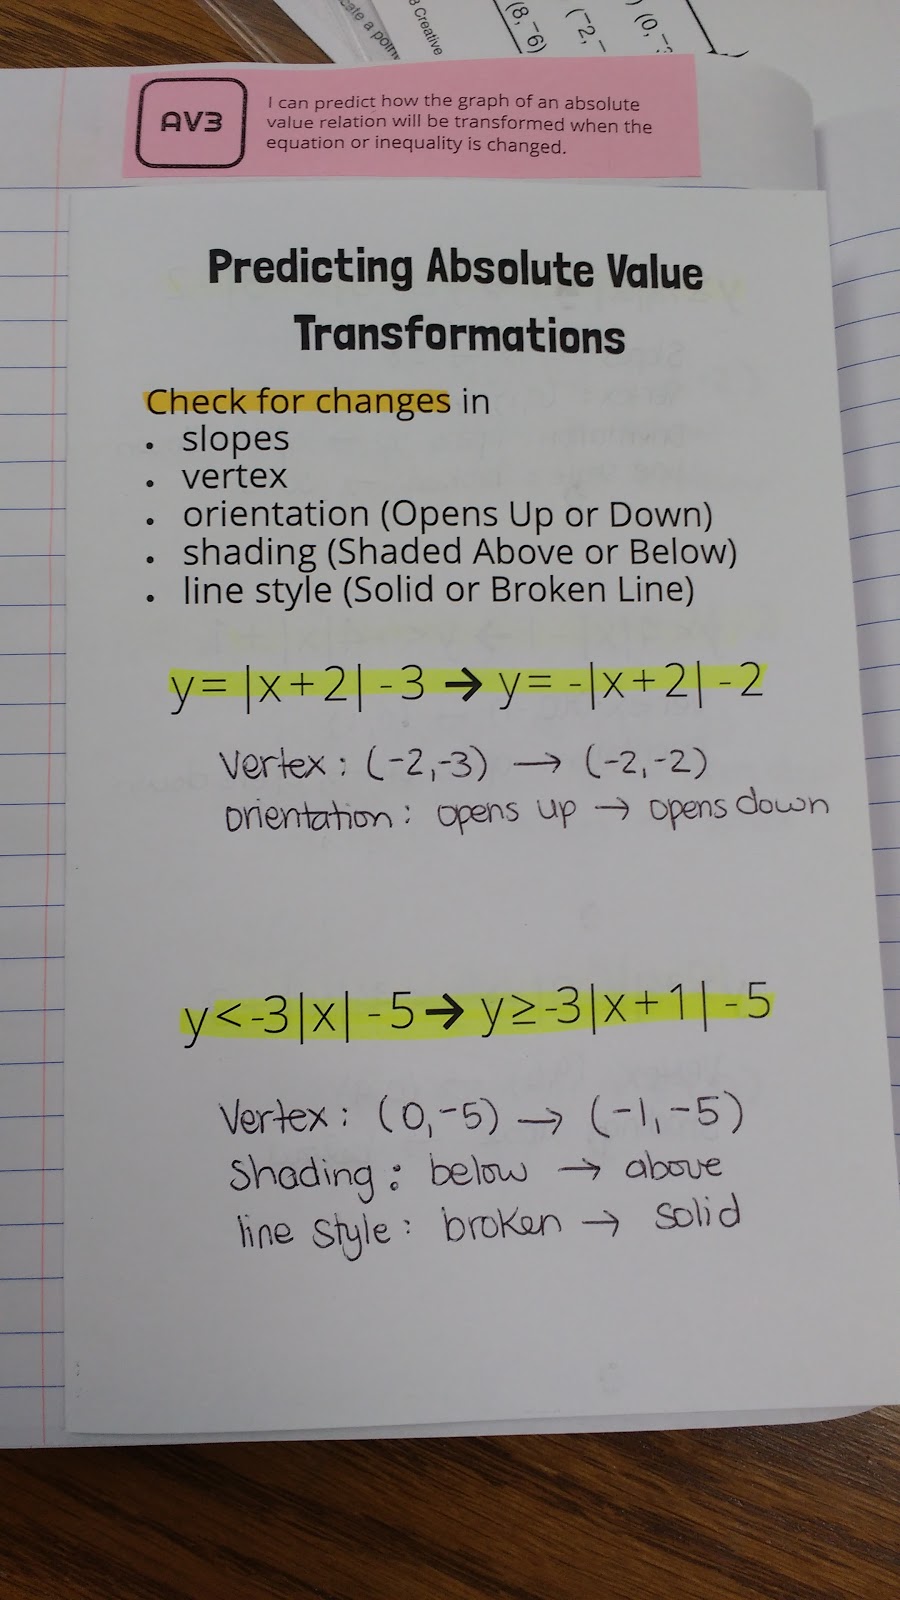 cate a point
3 Creative
(8,⁻6)
(⁻2,⁻
(0,⁻3
AV3
I can predict how the graph of an absolute
value relation will be transformed when the
equation or inequality is changed.
Predicting Absolute Value
Transformations
Check for changes in
• slopes
• vertex
• orientation (Opens Up or Down)
• shading (Shaded Above or Below)
• line style (Solid or Broken Line)
y=|x+2|-3→y=-|x+2|-2
Vertex: (-2,-3) → (-2,-2)
orientation: opens up → opens down
y<-3|x|-5→y≥-3|x+1|-5
Vertex: (0,-5) → (-1,-5)
Shading: below → above
line style: broken → solid